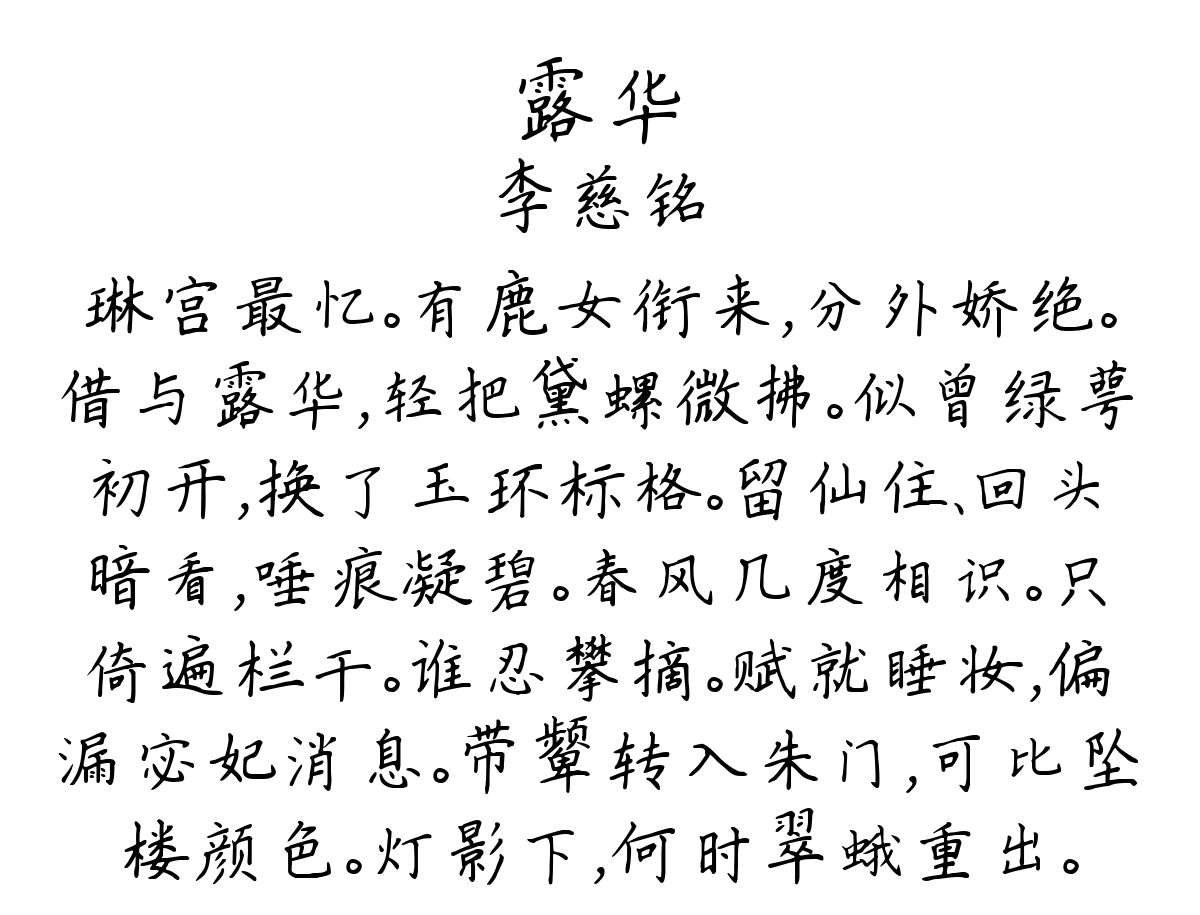 露华
李慈铭
琳宫最忆。有鹿女衔来,分外娇绝。
借与露华,轻把黛螺微拂。似曾绿萼
初开,换了玉环标格。留仙住、回头
暗看,唾痕凝碧。春风几度相识。只
倚遍栏干。谁忍攀摘。赋就睡妆,偏
漏宓妃消息。带颦转入朱门,可比坠
楼颜色。灯影下,何时翠蛾重出。